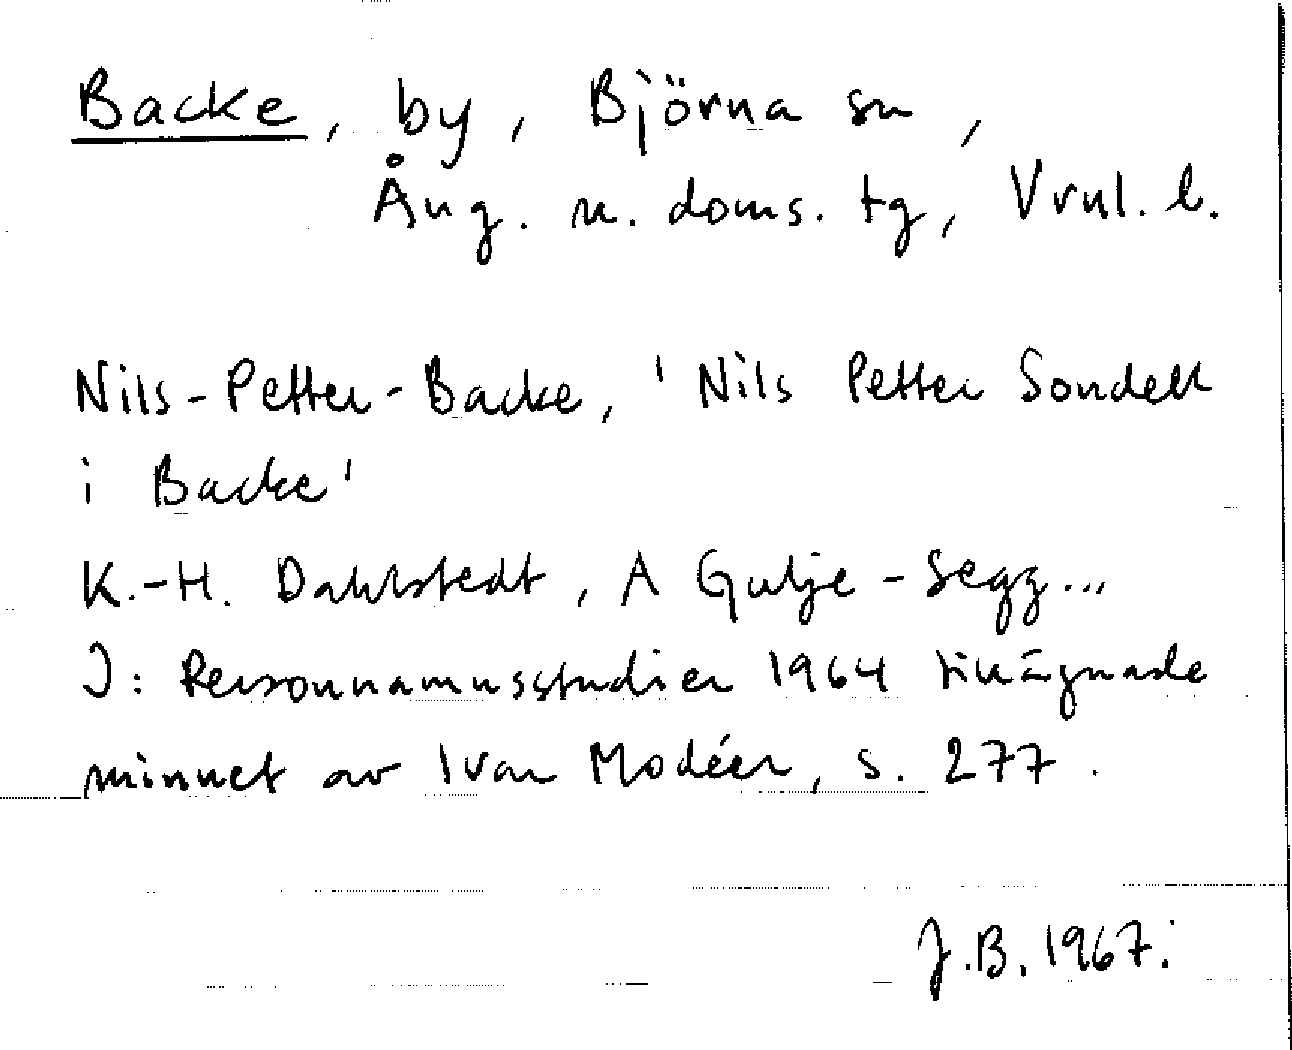 Backe, by, Björna sn,
Ång. n. doms. tg, Vrnl. l.
Nils-Petter-Backe, 'Nils Petter Sondell
i Backe'
K.-H. Dahlstedt, A Gulje-Segg...
I: Personnamnsstudier 1964 tillägnade
minnet av Ivar Modéer, s. 277.
J.B. 1967.